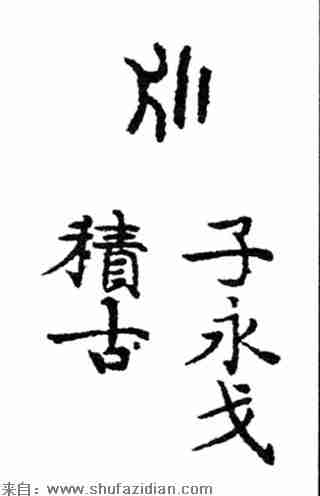 永
子永戈
積古
来自：www.shufazidian.com